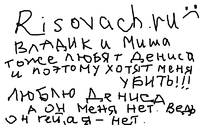 Risovach.ru
ВЛАДИК и Миша
тоже любят Дениса
и поэтому хотят меня
УБИТЬ!!!
ЛЮБЛЮ ДЕНИСА
А он меня нет. Ведь
он гей, а я - нет.